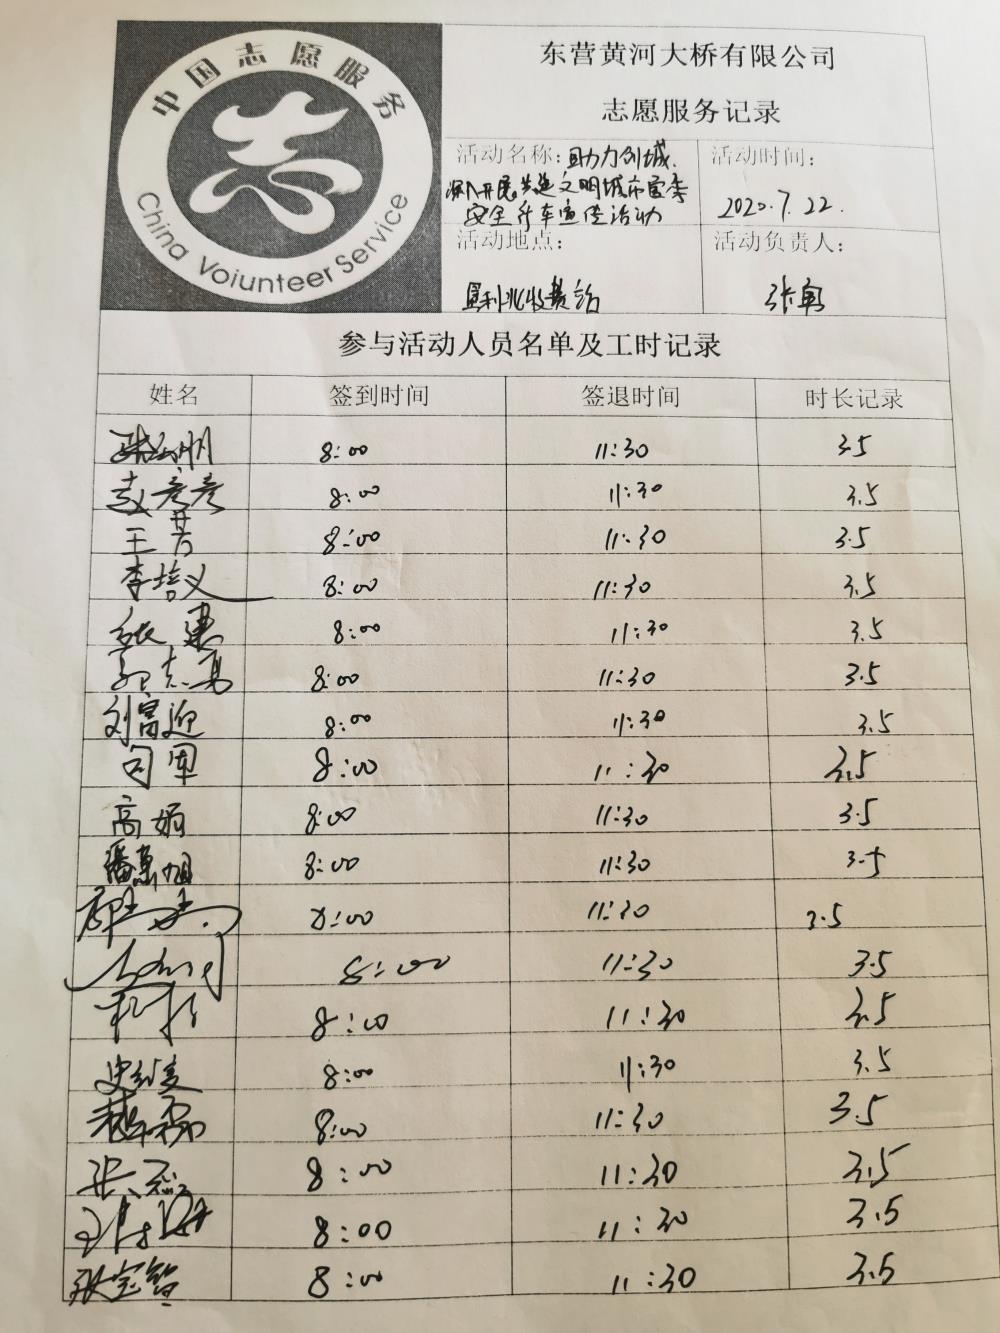 中国志愿服务
China Voiunteer Service
东营黄河大桥有限公司
志愿服务记录
活动名称：助力创城.
文明城市
安全行车宣传活动
活动时间：
2020.7.22.
活动地点：
垦利北收费站
活动负责人：
参与活动人员名单及工时记录
姓名 签到时间 签退时间 时长记录
8:00 11:30 3.5
赵彦彦 8:00 11:30 3.5
王芳 8:00 11:30 3.5
李培义 8:00 11:30 3.5
张建 8:00 11:30 3.5
郭志勇 8:00 11:30 3.5
刘富迎 8:00 11:30 3.5
司军 8:00 11:30 3.5
高娟 8:00 11:30 3.5
潘惠 8:00 11:30 3.5
8:00 11:30 3.5
8:00 11:30 3.5
8:00 11:30 3.5
8:00 11:30 3.5
8:00 11:30 3.5
8:00 11:30 3.5
8:00 11:30 3.5
张宝 8:00 11:30 3.5